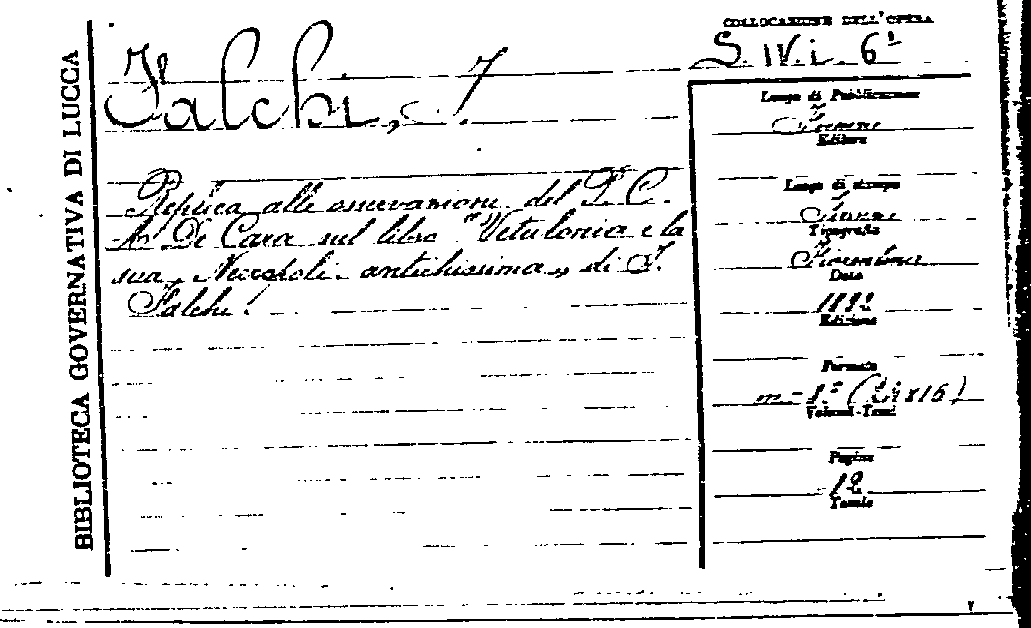 BIBLIOTECA GOVERNATIVA DI LUCCA
COLLOCAZIONE DELL'OPERA
S. IV. i. 6¹
Falchi, I.
Replica alle osservazioni del P. C.
A. De Cara sul libro "Vetulonia e la
sua Necropoli antichissima„ di I.
Falchi.
Luogo di Pubblicazione
Firenze
Editore
Luogo di stampa
Firenze
Tipografia
Fiorentina
Data
1892
Edizione
Formato
m-8° (24x16)
Volumi-Tomi
Pagine
12
Tavole